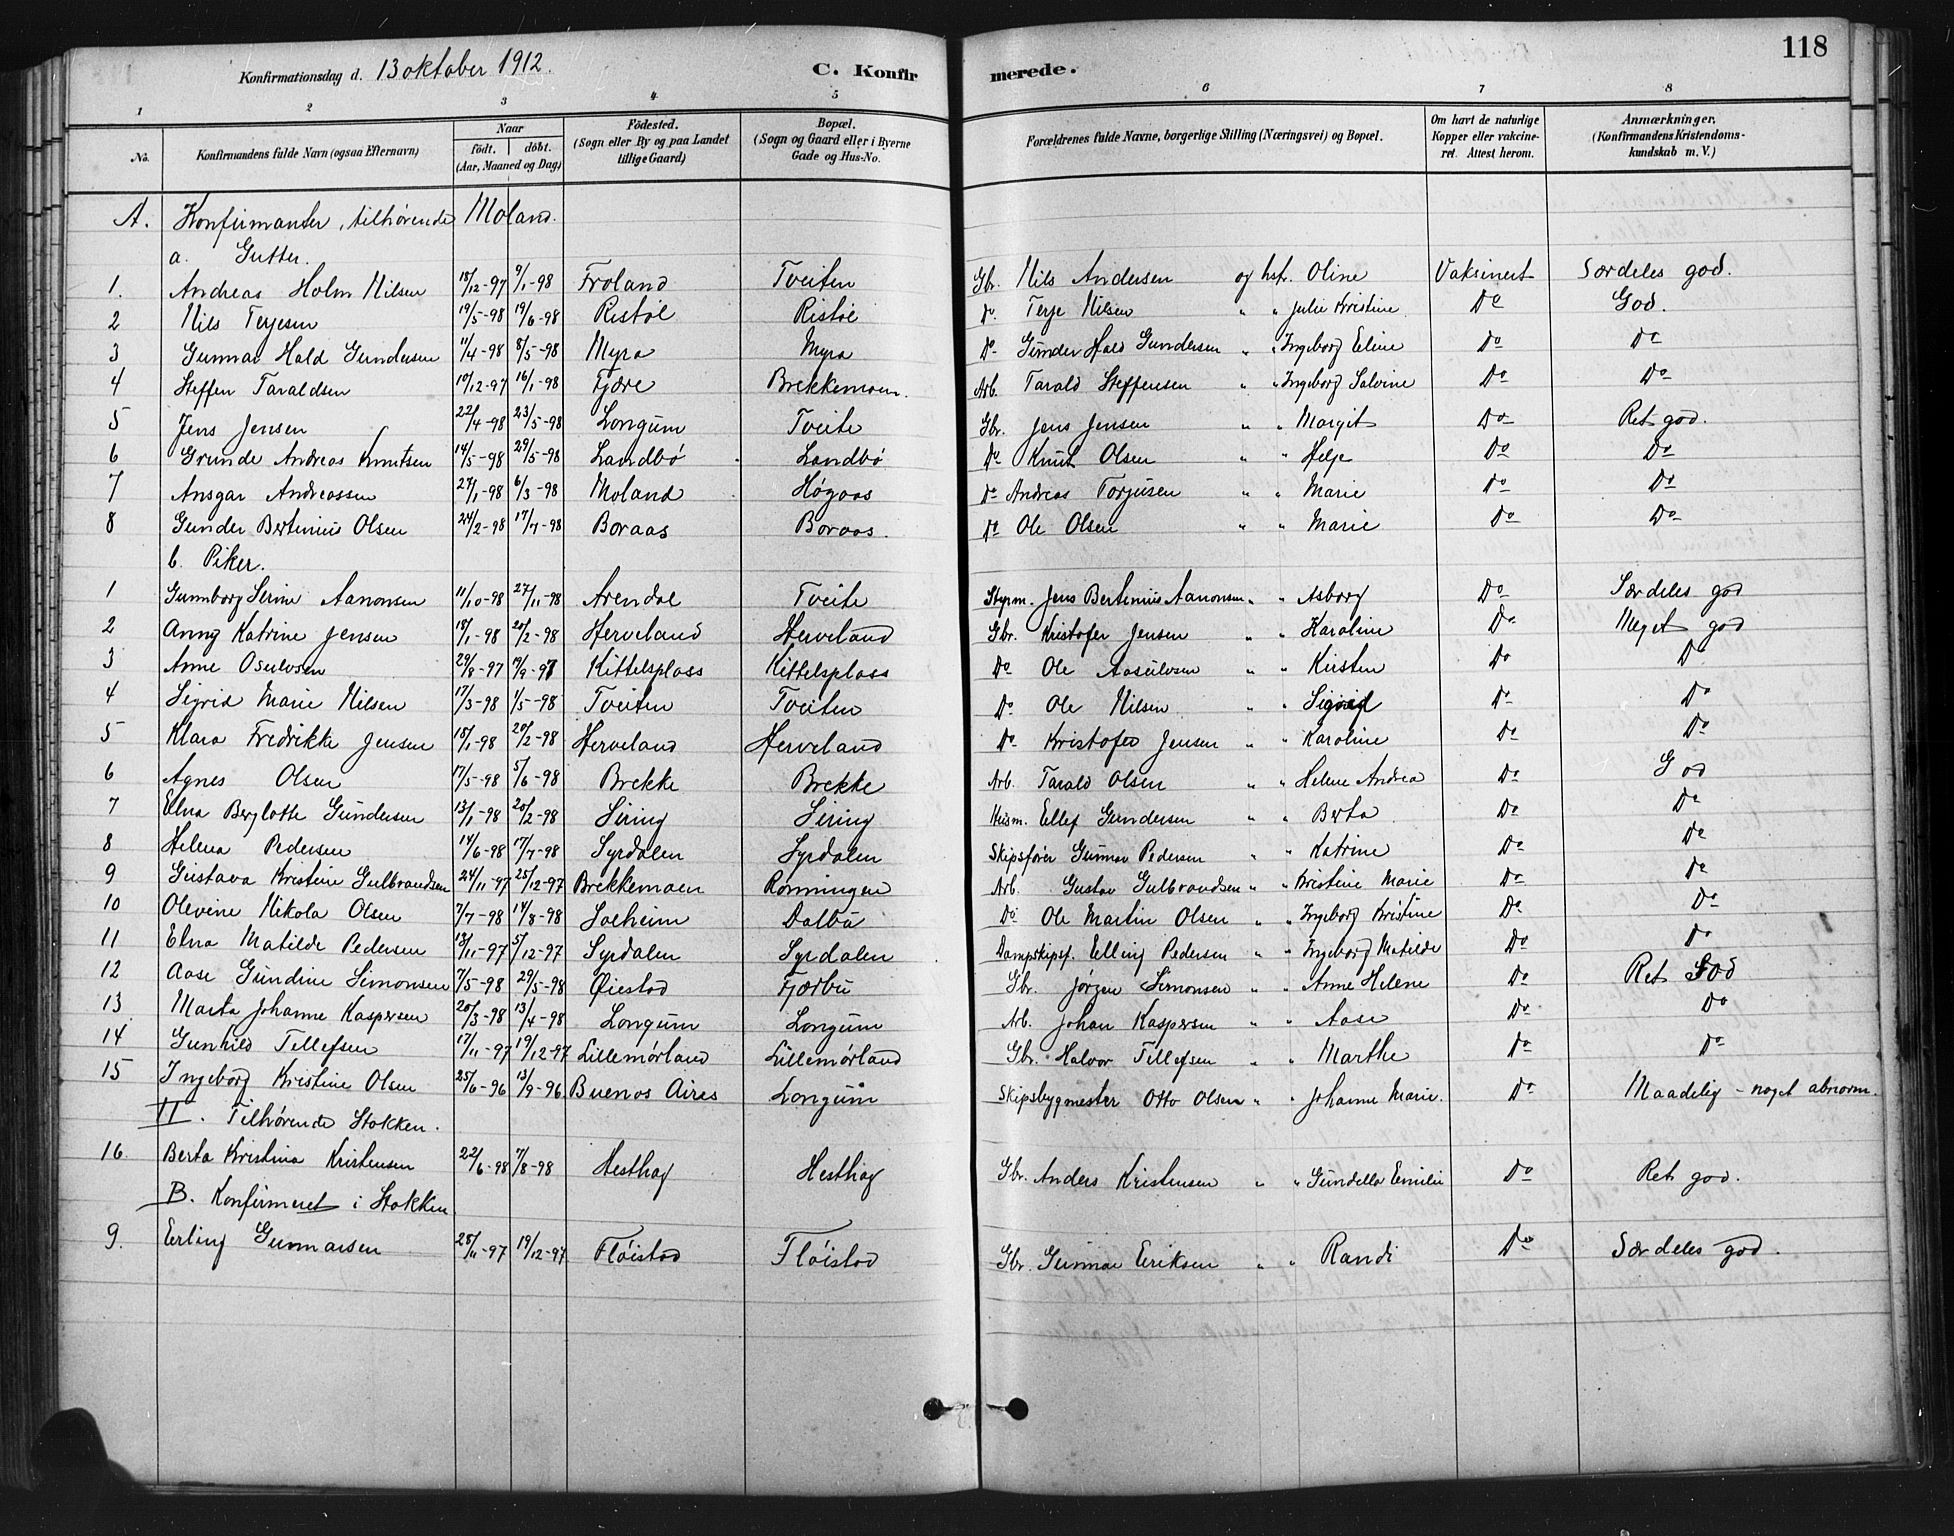 118
Konfirmationsdag d. 13 oktober 1912. C. Konfirmerede.
1 2 3 4 5 6 7 8
No. Konfirmandens fulde Navn (ogsaa Efternavn) Naar födt. döbt. (Aar, Maaned og Dag) Födested. (Sogn eller By og paa Landet tillige Gaard) Bopæl. (Sogn og Gaard eller i Byerne Gade og Hus-No. Forældrenes fulde Navne, borgerlige Stilling (Næringsvei) og Bopæl. Om havt de naturlige Kopper eller vakcineret. Attest herom. Anmærkninger. (Konfirmandens Kristendomskundskab m. V.)
A. Konfirmanter, tilhørende Moland.
a. Gutter.
1. Andreas Holm Nilsen 18/12-97 9/1-98 Froland Tveiten Gbr. Nils Andersen og hst. Oline Vaksinert Særdeles god.
2 Nils Terjesen 19/5-98 19/6-98 Ristøl Ristøl Do. Terje Nilsen " " Julie Kristine Do God.
3 Gunnar Hald Gundersen 11/4-98 8/5-98 Myra Myra Do Gunder Hald Gundersen " " Ingeborg Eline Do Do
4 Steffen Taraldsen 10/12-97 16/1-98 Fjære Brekkemoen. Arb. Tarald Steffensen " " Ingeborg Salvine Do Do
5 Jens Jensen 22/4-98 23/5-98 Longum Tveite Gbr. Jens Jensen " " Margit Do Ret god.
6 Grunde Andreas Knutsen 14/5-98 29/5-98 Landbö Landbö Do Knut Olsen " " Helje Do Do
7 Ansgar Andreassen 27/1-98 6/3-98 Moland Høgaas Do Andreas Torjusen " " Marie Do Do
8 Gunder Bertinius Olsen 24/2-98 17/7-98 Boraas Boraas. Do Ole Olsen " " Marie Do Do
b. Piker.
1 Gunnborg Serine Aanonsen 11/10-98 27/11-98 Arendal Tveite Styrm. Jens Bertinius Aanonsen " " Asborg Do Særdeles god
2 Anny Katrine Jensen 18/1-98 20/2-98 Herveland Herveland Gbr. Kristofer Jensen " " Karoline Do Meget god
3 Anne Osulvsen 29/8-97 19/9-97 Kittelsplass Kittelsplass Do Ole Aasulvsen " " Kirsten Do Do
4 Sigrid Marie Nilsen 17/3-98 1/5-98 Tveiten Tveiten Do Ole Nilsen " " Do Do
5 Klara Fredrikke Jensen 18/1-98 20/2-98 Herveland Herveland Do Kristofer Jensen " " Karoline Do Do
6 Agnes Olsen 17/5-98 5/6-98 Brekke Brekke Arb. Tarald Olsen " " Helene Andrea Do God
7 Elna Berglotte Gundersen 13/1-98 20/2-98 Siring Siring Husm. Ellef Gundersen " " Berta Do Do
8 Helena Pedersen 14/6-98 17/7-98 Syrdalen Syrdalen Skipsfører Gunnar Pedersen " " Katrine Do Do
9 Gustava Kristine Gulbrandsen 24/11-97 25/12-97 Brekkemoen Rønningen Arb. Gustav Gulbrandsen " " Kristine Marie Do Do
10 Olevine Nikola Olsen 7/7-98 14/8-98 Solheim Dalbu Do Ole Martin Olsen " " Ingeborg Kristine Do Do
11 Elna Matilde Pedersen 13/11-97 5/12-97 Syrdalen Syrdalen Dampskipsf. Elling Pedersen " " Ingeborg Matilde Do Do
12 Aase Gundine Simonsen 7/5-98 29/5-98 Øiestad Fjærbu Gbr. Jørgen Simonsen " " Anne Helene Do Ret God
13 Marta Johanne Kaspersen 20/3-98 13/4-98 Longum Longum Arb. Johan Kaspersen " " Aase Do Do
14 Gunhild Tellefsen 17/11-97 19/12-97 Lillemörland Lillemörland Gbr. Halvor Tellefsen " " Marthe Do Do
15 Ingeborg Kristine Olsen 25/6-96 13/9-96 Buenos Aires Longum Skipsbygmester Otto Olsen " " Johanne Marie. Do Maadelig - noget abnorm.
II. Tilhørende Stokken.
16 Berta Kristina Kristensen 22/6-98 7/8-98 Hesthag Hesthag Gbr. Anders Kristensen " " Gundella Emilie Do Ret god.
B. Konfirmeret i Stokken
9. Erling Gunnarsen 28/11-97 19/12-97 Flöistad Flöistad Gbr. Gunnar Eriksen " " Randi Do Særdeles god.